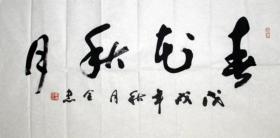 春花秋月
戊戌年秋月